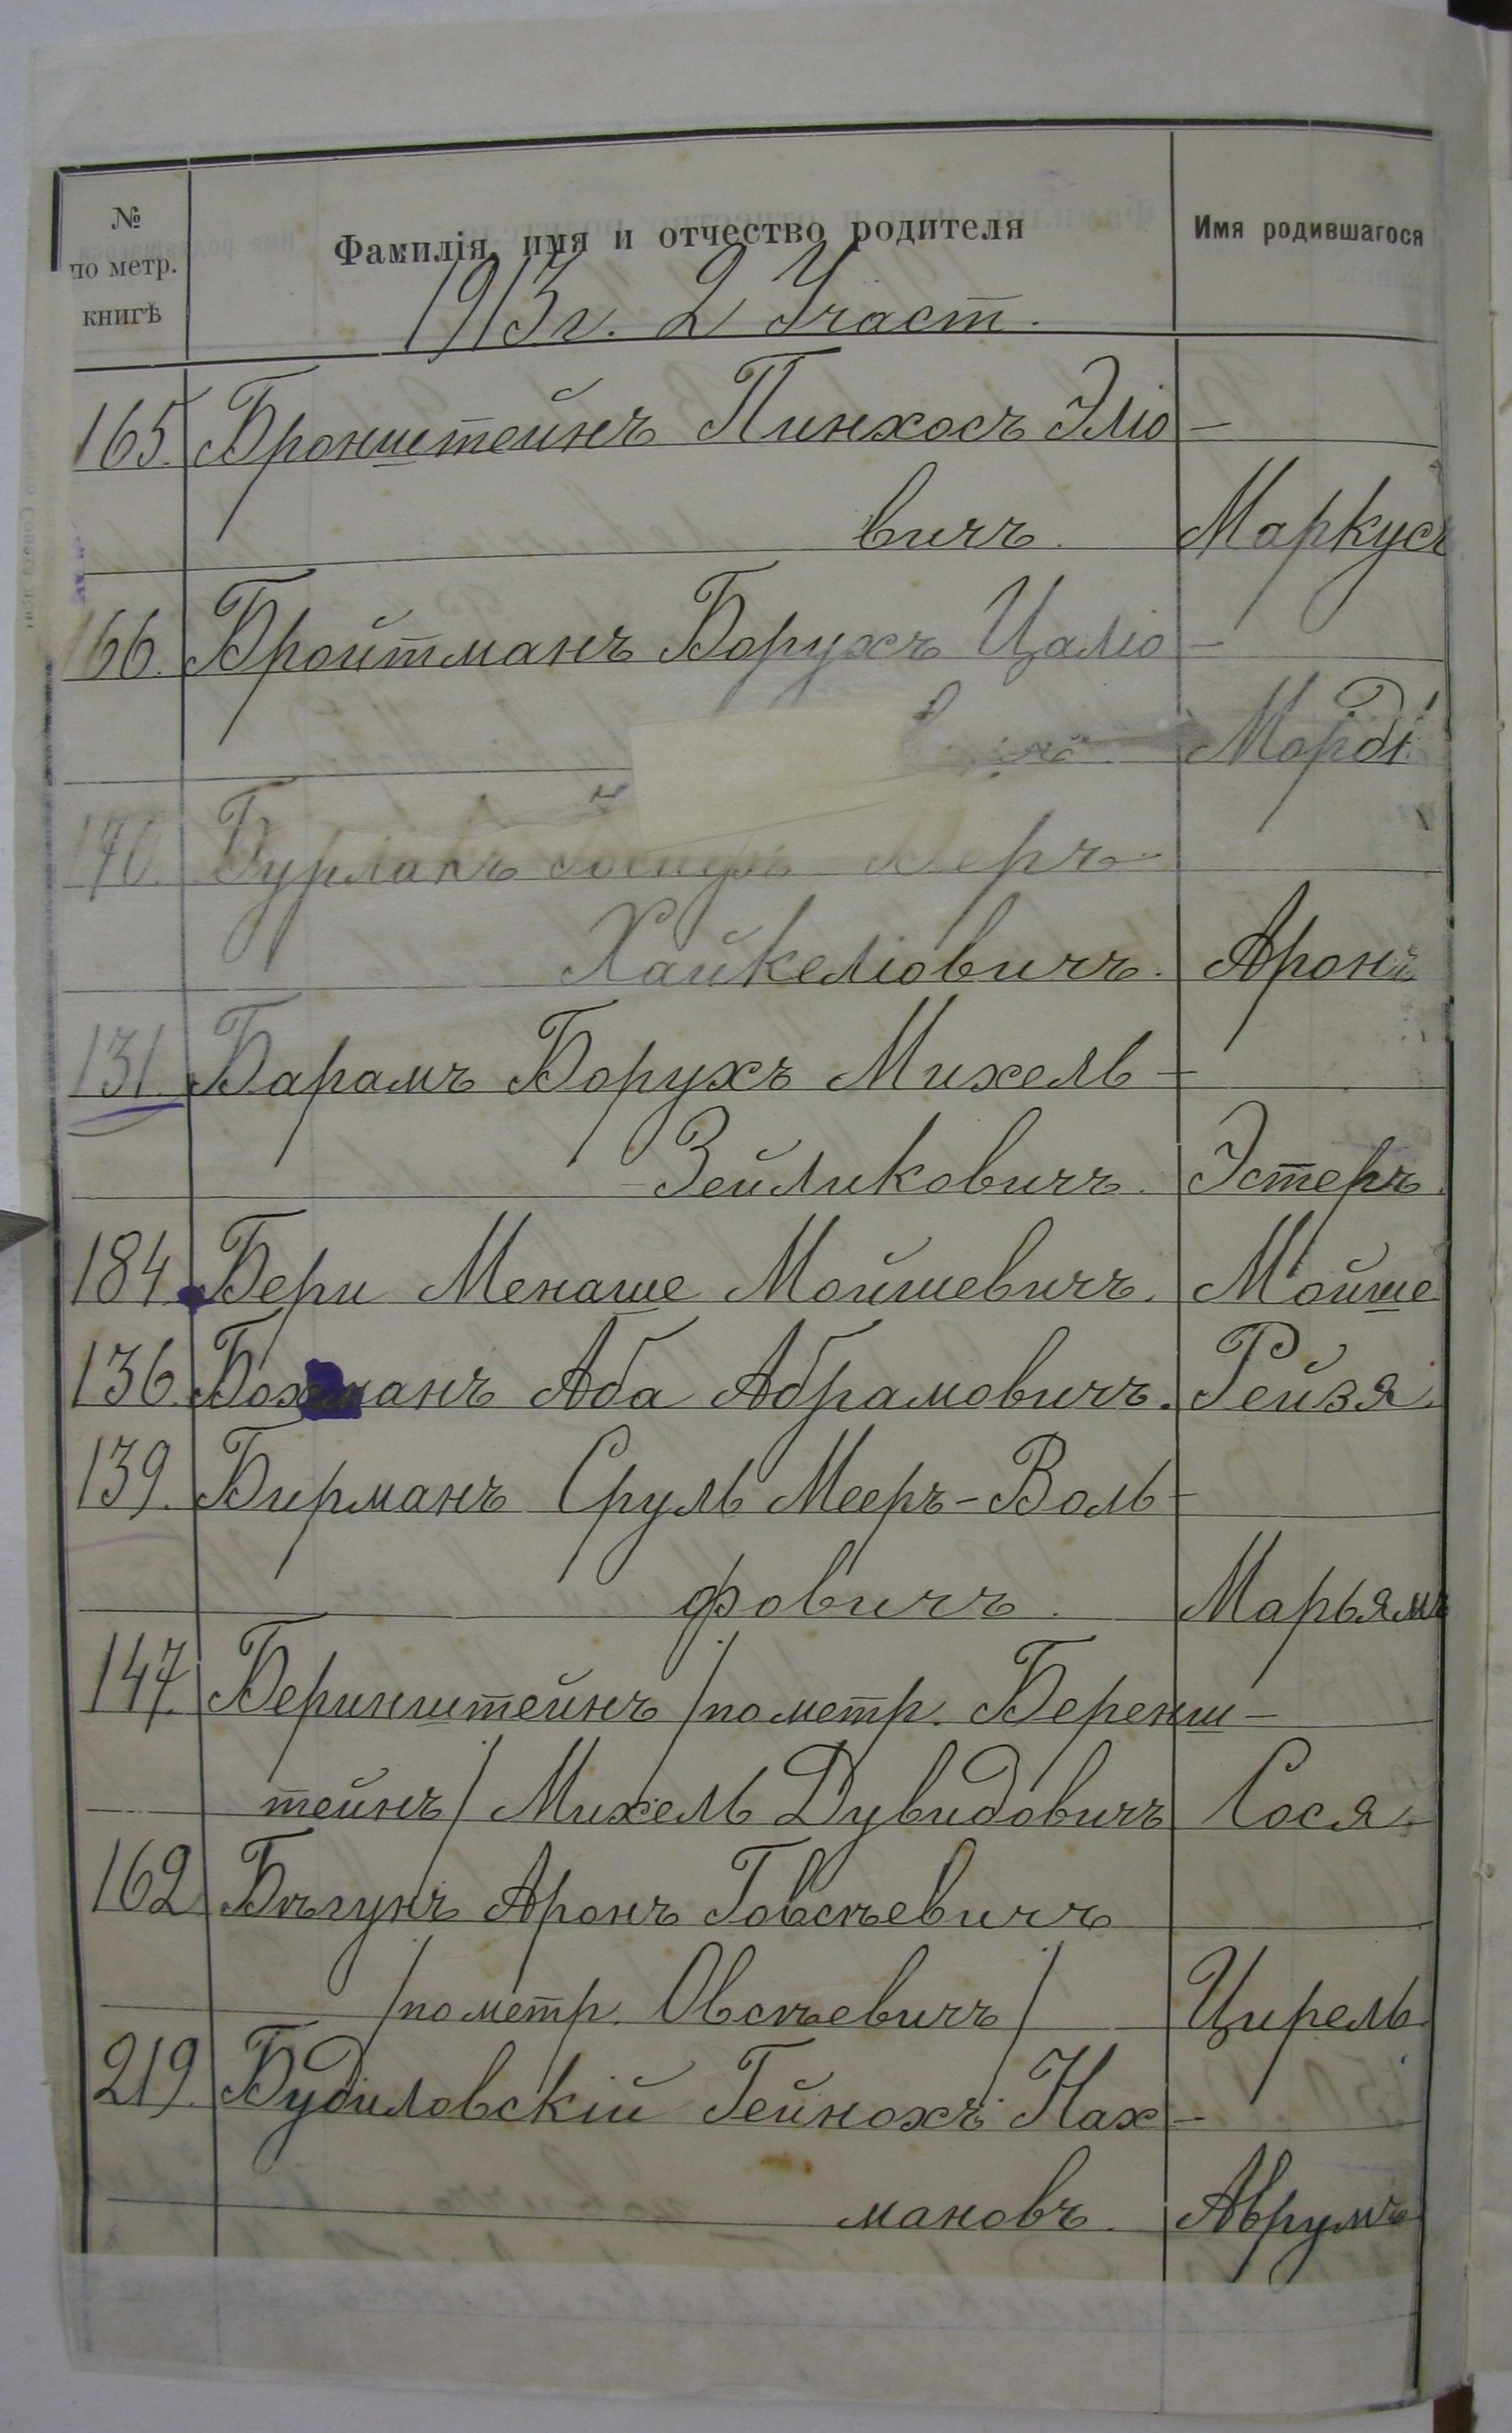 № по метр. книгѣ
Фамилія, имя и отчество родителя
Имя родившагося
1913 г. 2 Участ.
165. Бронштейнъ Пинхосъ Эліо-
вичъ. Маркусъ
166. Бройтманъ Борухъ Цаліо-
Морд
170. Бурлакъ Іосифъ Беръ-
Хайкеліовичъ. Аронъ
131. Барамъ Борухъ Михель-
Зейликовичъ. Эстеръ.
184. Бери Менаше Мойшевичъ. Мойше
136. Бохманъ Аба Абрамовичъ. Рейзя.
139. Бирманъ Сруль Мееръ-Воль-
фовичъ. Марьямъ
147. Беринштейнъ /по метр. Беренш-
тейнъ/ Михель Дувидовичъ Сося.
162 Бѣгунъ Аронъ Говсѣевичъ
/по метр. Овсѣевичъ/ Цирель.
219. Будиловскій Гейнохъ Нах-
мановъ. Аврумъ